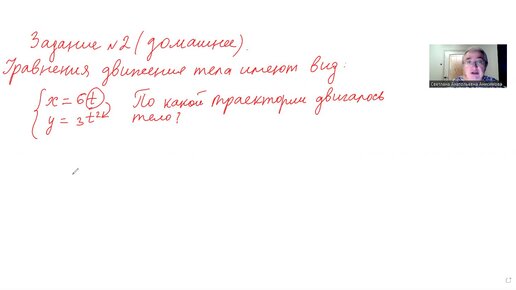 Задание №2 (домашнее).
Уравнения движения тела имеют вид:
x = 6t По какой траектории двигалось
y = 3t² тело?
Светлана Анатольевна Анисимова